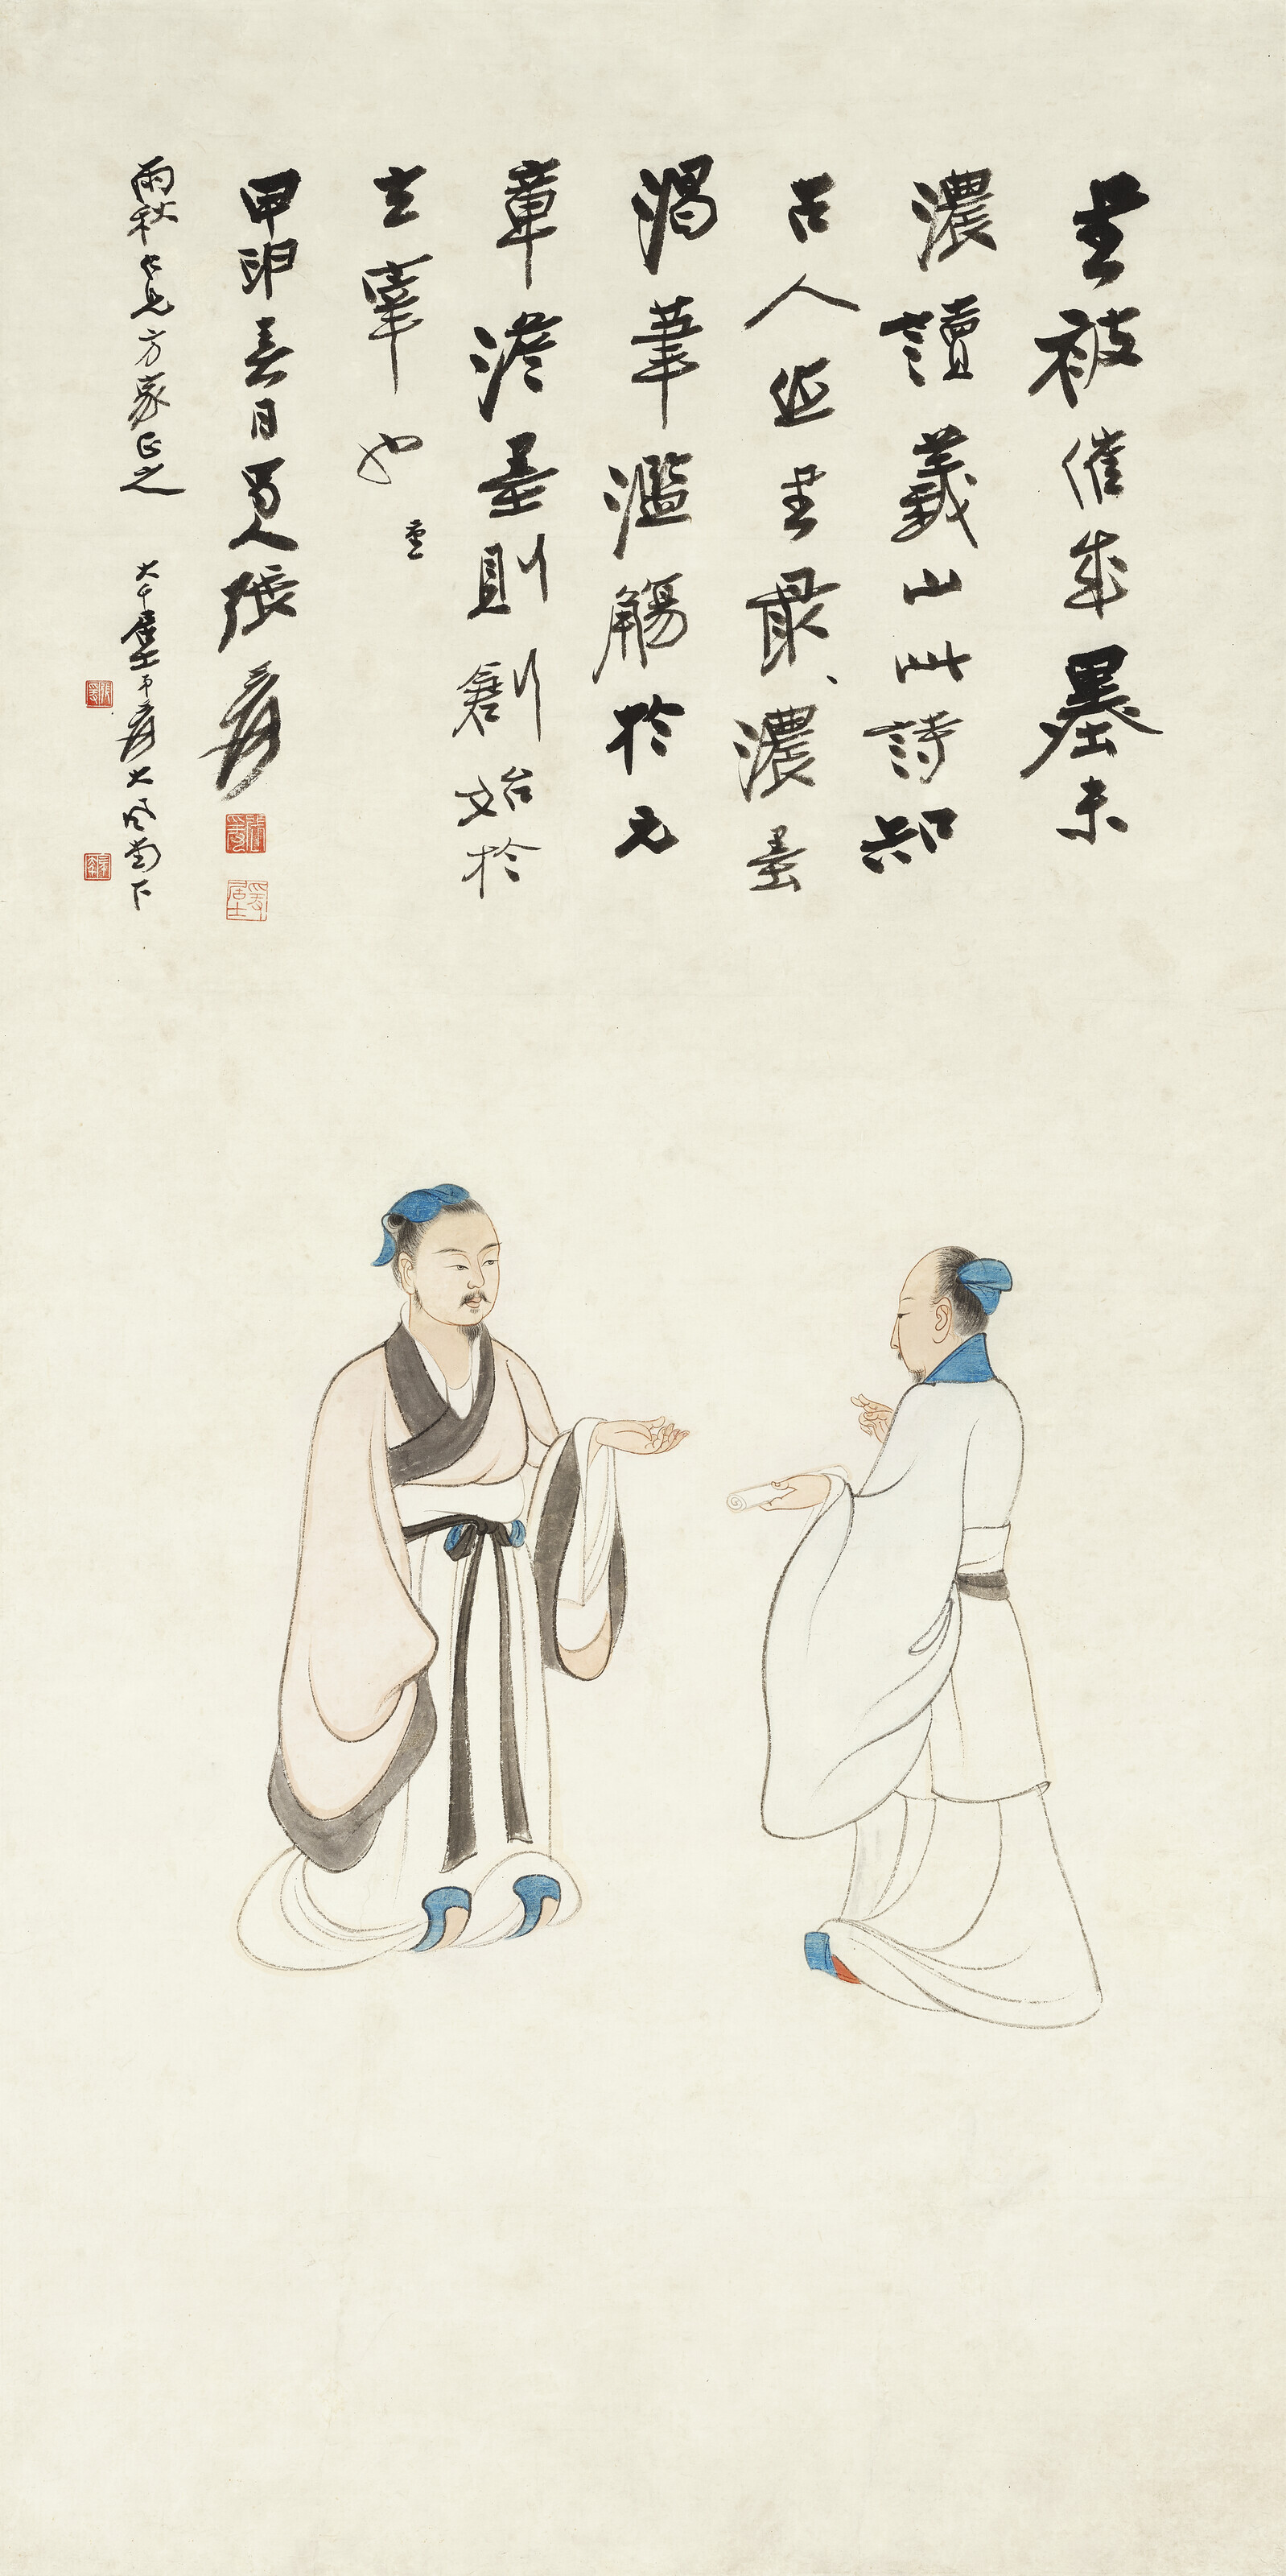 書被催成墨未
濃讀義山此詩知
古人作書最、濃墨
渴筆濫觴於元
章澹墨則創始於
玄宰也 重
甲申春日蜀人張爰
雨秋仁兄方家正之 大千居士弟爰大風堂下